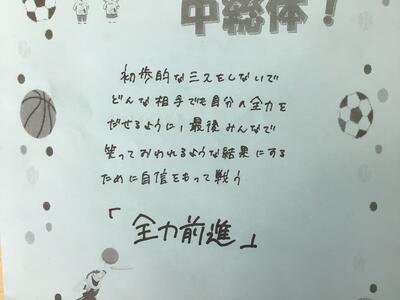 中総体!
初歩的なミスをしないで
どんな相手でも自分の全力を
だせるように,最後みんなで
笑っておわれるような結果にする
ために自信をもって戦う
「全力前進」